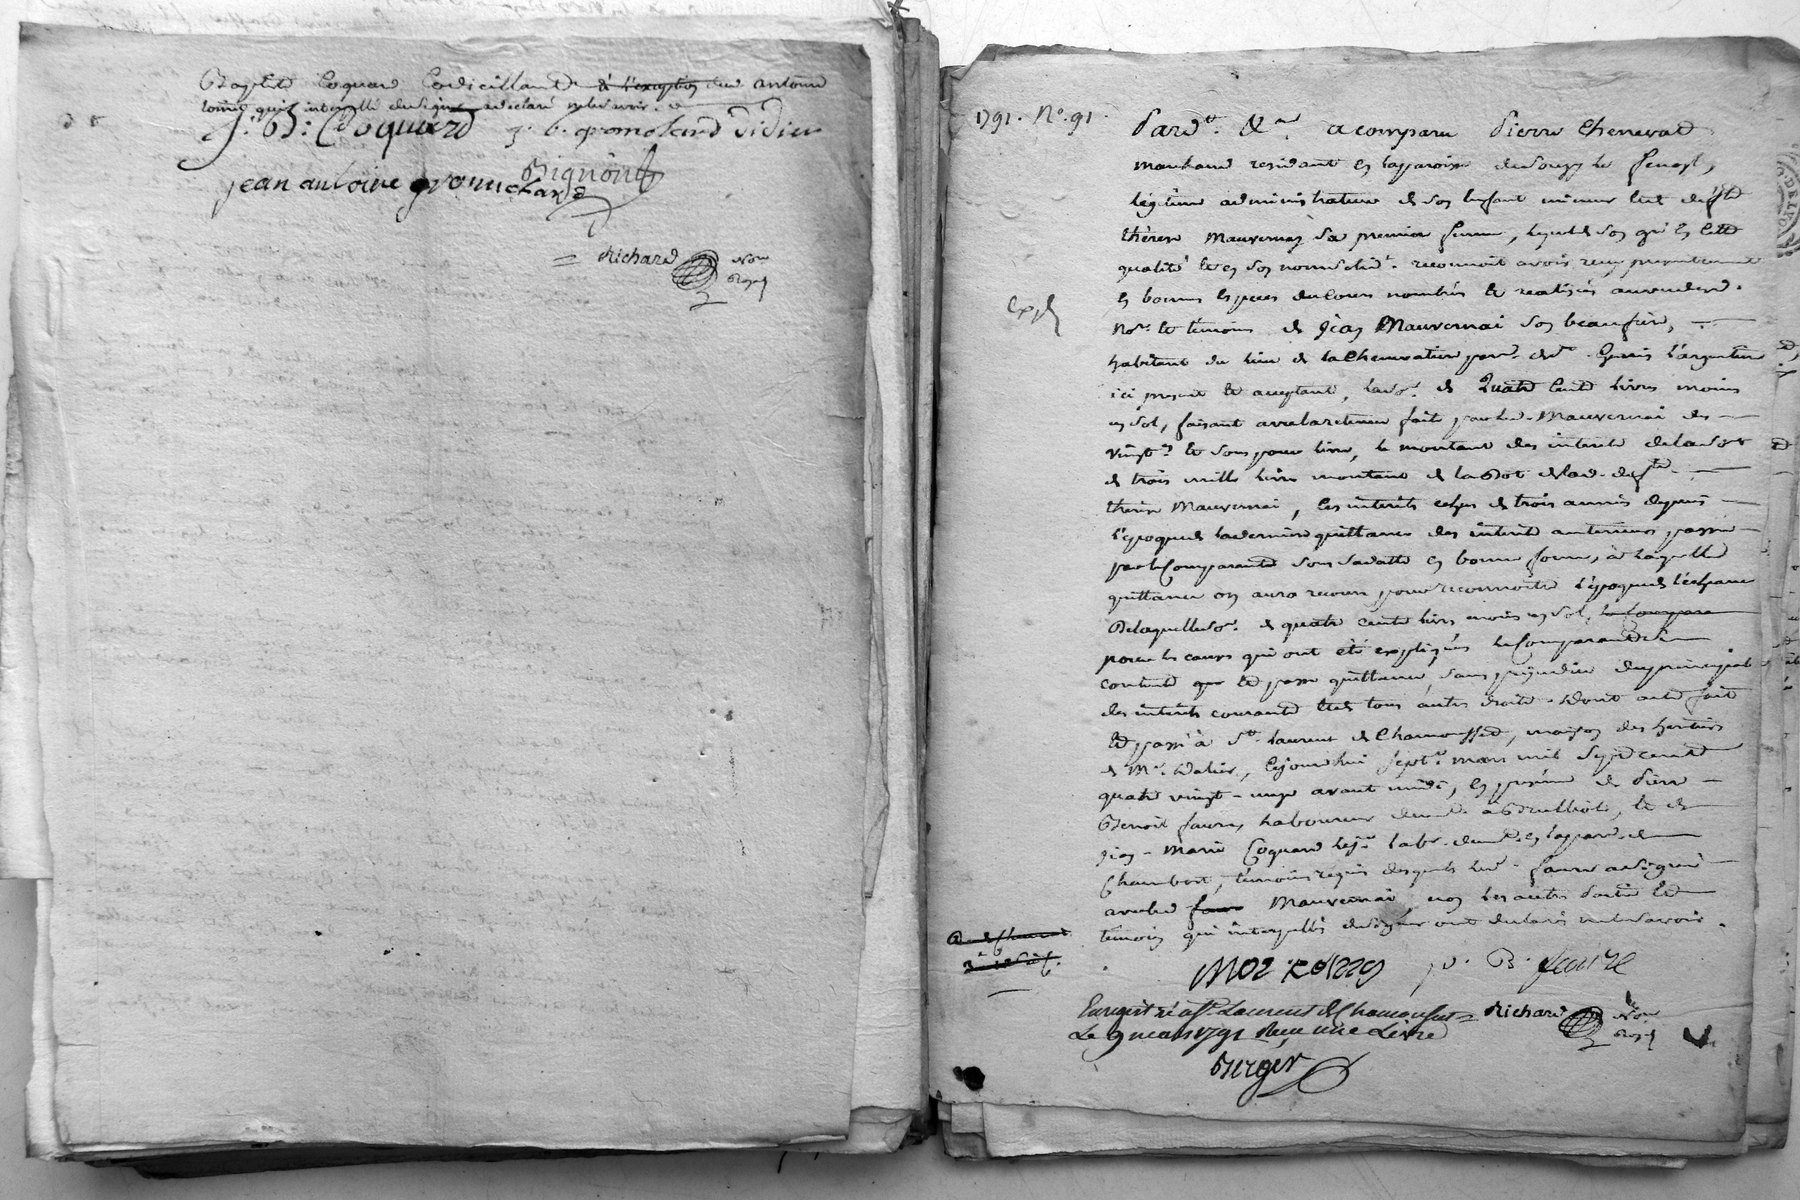 Baptiste Coquard Cordeillant à l'exception dud. antoine
qui interpellé de signer a declaré ne le savoir.
J: B: Coquard J. B. gromolard Didier
Bignon
jean antoine gromolard
Richard No.re Royal
1791. N.o 91.
Pard.t &.a a comparu Pierre Chenevat
marchand residant en la paroisse de Souzy le
légitime administrateur de son enfant mineur et de def.te
therese Mauvernay sa premiere femme, lequel de son gré en cette
qualité et en son nom reconnoit avoir reçu presentement
en bonnes especes de cours nombrés et realisés au vu dud.
No.re et temoins de Jean Mauvernai son beaufrere,
habitant du lieu de la Chenevatiere par.se de S.t Genis l'argentiere
ici present et acceptant, la so.e de quatre cents livres moins
un sol, faisant avec la retenue fait par led. Mauvernai des
vingt.es et sous pour livre, le montant des interets de la somme
de trois mille livres montant de la dot de lad. def.te
therese Mauvernai, les interets echus de trois années depuis
l'epoque de la derniere quittance des interets anterieurs passée
par le Comparant sous sa datte en bonne forme, à laquelle
quittance on aura recours pour reconnoitre l'epoque de l'echeance
De laquelle so.e de quatre cents livres moins un sol, le Compara
pour les causes qui ont été expliquées le Comparant se
contente et passe quittance, sans prejudice du principal
des interets courants et de tous autres droits. Dont acte fait
et passé à S.t Laurent de Chamousset, maison des heritiers
de M.e, cejourdhui sept.e mars mil sept cent
quatre vingt-onze avant midi, en presence de Pierre
Benoit faure laboureur dem.t à Brullioles, et de
Jean-Marie Coquard lab.r dem.t en la par.se de
Chambost, temoins requis desquels led. faure a signé
avec led. Mauvernai, non les autres partie et
temoin qui interpellés de signer ont declaré ne le savoir.
Exp.é
p. B. faure
Enregistré à S.t Laurent de Chamousset Richard No.re Royal
Le 9 mars 1791 Reçu une Livre
Berger